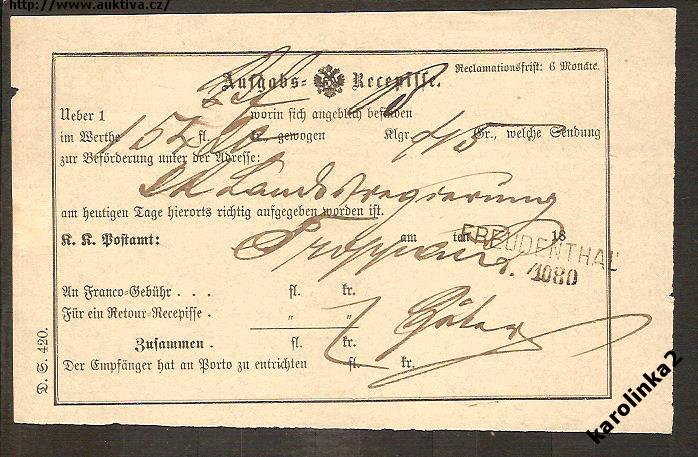 http://www.auktiva.cz/
Reclamationsfrist: 6 Monate.
Aufgabs= Recepisse.
Ueber 1 worin sich angeblich befinden
im Werthe 154 fl. kr. gewogen Klgr. Gr., welche Sendung
zur Beförderung unter der Adresse:
Landesregierung
am heutigen Tage hierorts richtig aufgegeben worden ist.
K. K. Postamt: Troppau am ten 18
FREUDENTHAL
1080
An Franco-Gebühr . . . fl. kr.
Für ein Retour-Recepisse . „ „
Zusammen . fl. kr.
Der Empfänger hat an Porto zu entrichten fl. kr.
D. S. 420.
karolinka2